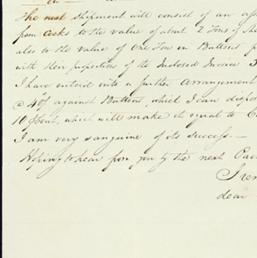 The next Shipment will consist of an ass
from Casks to the value of about 2 Tons of She
also to the value of One Ton in Buttons p
with their proportions of the Inclosed Invoice
I have entered into a further Arrangement
against Buttons, which I can dispos
which will make it equal to C
I am very sanguine of its success —
Hoping to hear from you by the next Pac
I rem
dear